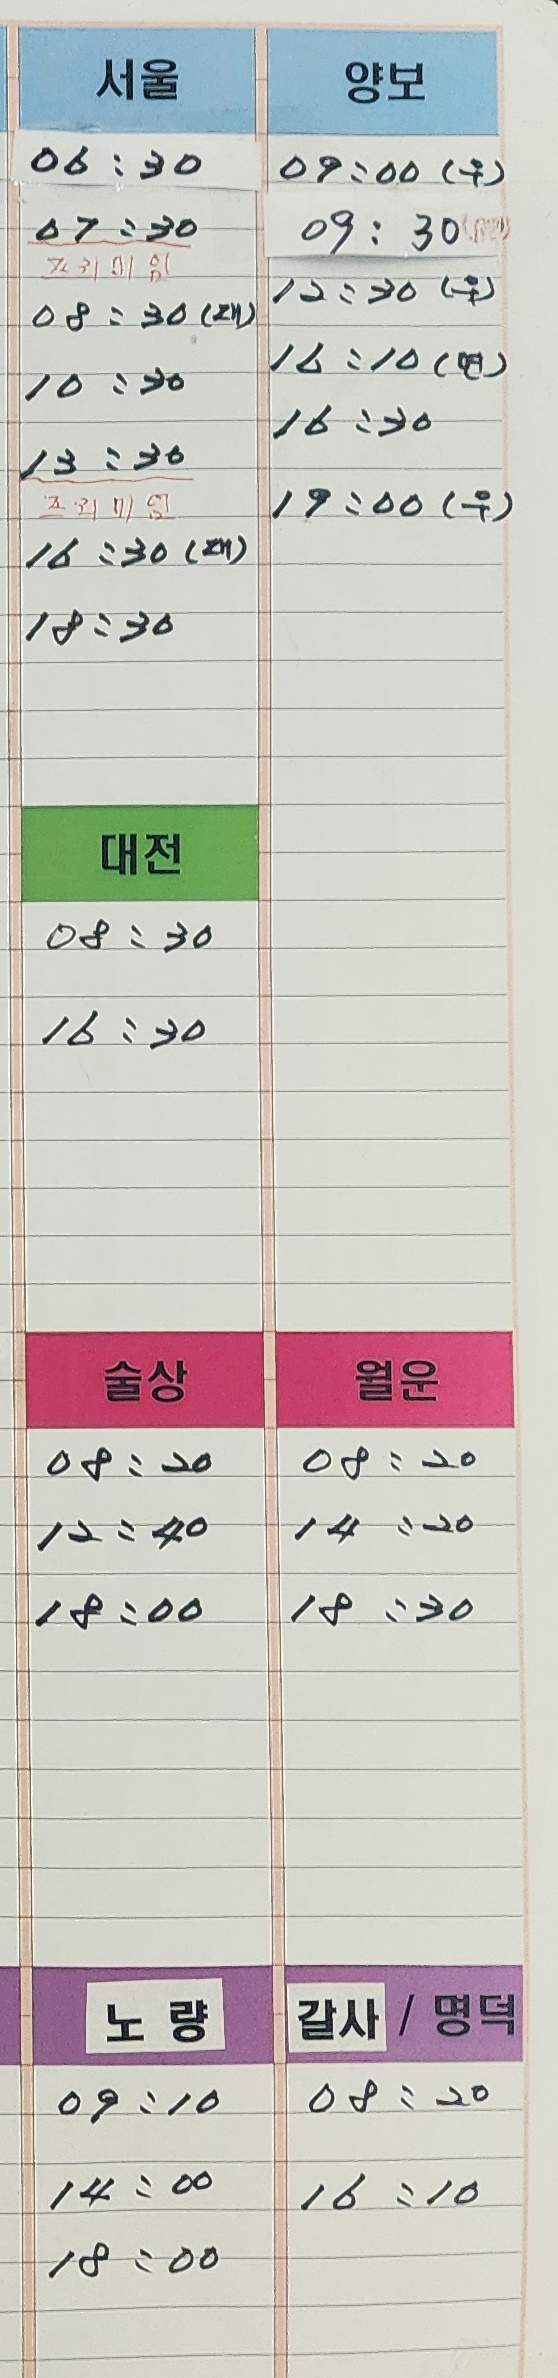 서울
06:30
07:30
프리미엄
08:30 (재)
10:30
13:30
프리미엄
16:30 (재)
18:30
양보
09:00 (우)
09:30
12:30 (우)
16:10 (면)
16:30
19:00 (우)
대전
08:30
16:30
술상
08:20
12:40
18:00
월운
08:20
14:20
18:30
노량
09:10
14:00
18:00
갈사 / 명덕
08:20
16:10